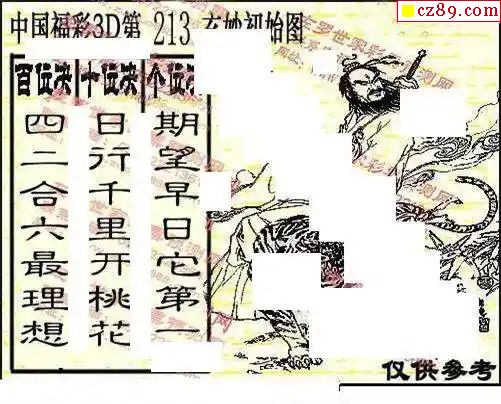 cz89.com
中国福彩3D第 213 玄妙初始图
百位决 十位决 个位决
四二合六最理想
日行千里开桃花
期望早日它第一
仅供参考